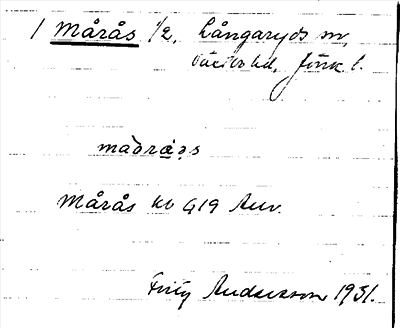 1 Mårås 1/2, Långaryds sn,
Västbo hd, Jönk. l.
Mårås kb G19 Anv.
Andersson 1931.